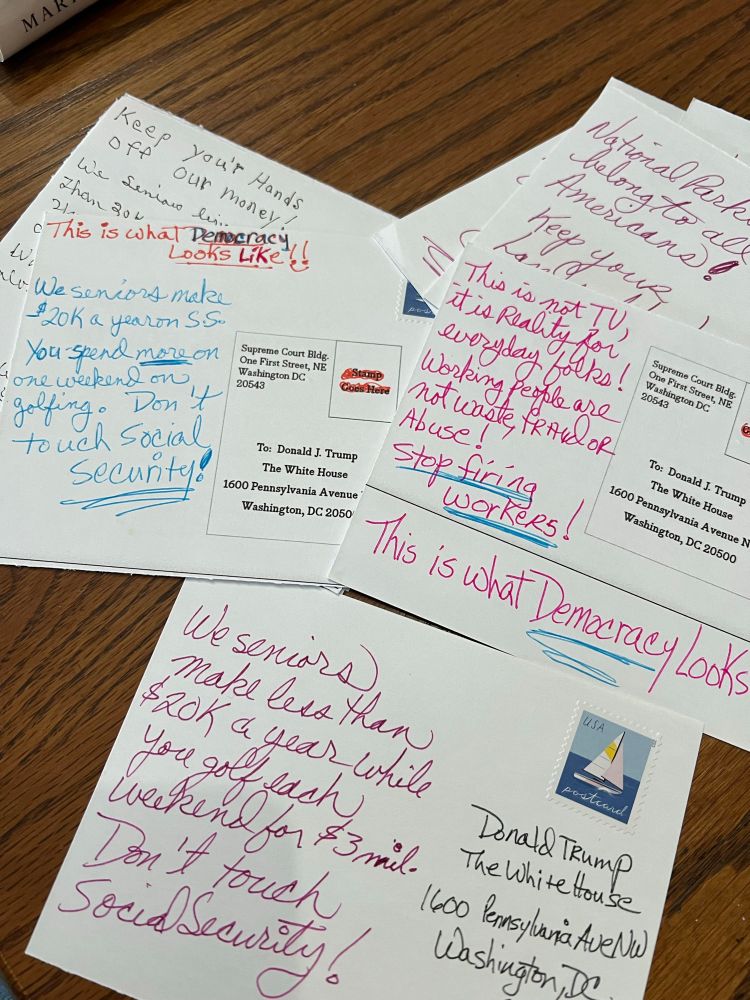 MAR
Keep you'r Hands
off our money!
We Seniors
than 20K
This is what Democracy
Looks Like!!
We seniors make
$20K a year on SS.
You spend more on
one weekend on
golfing. Don't
touch Social
Security!
Supreme Court Bldg.
One First Street, NE
Washington DC
20543
Stamp
Goes Here
To: Donald J. Trump
The White House
1600 Pennsylvania Avenue
Washington, DC 2050
National Parks
belong to all
Americans!
Keep your
This is not TV,
it is Reality for
everyday folks!
Working People are
not waste, FRAUD OR
Abuse!
Stop firing
workers!
Supreme Court Bldg.
One First Street, NE
Washington DC
20543
To: Donald J. Trump
The White House
1600 Pennsylvania Avenue N
Washington, DC 20500
This is what Democracy Looks
We seniors
make less than
$20K a year while
you golf each
weekend for $3 mil.
Don't touch
Social Security!
USA
postcard
Donald Trump
The White House
1600 Pennsylvania Ave NW
Washington, DC